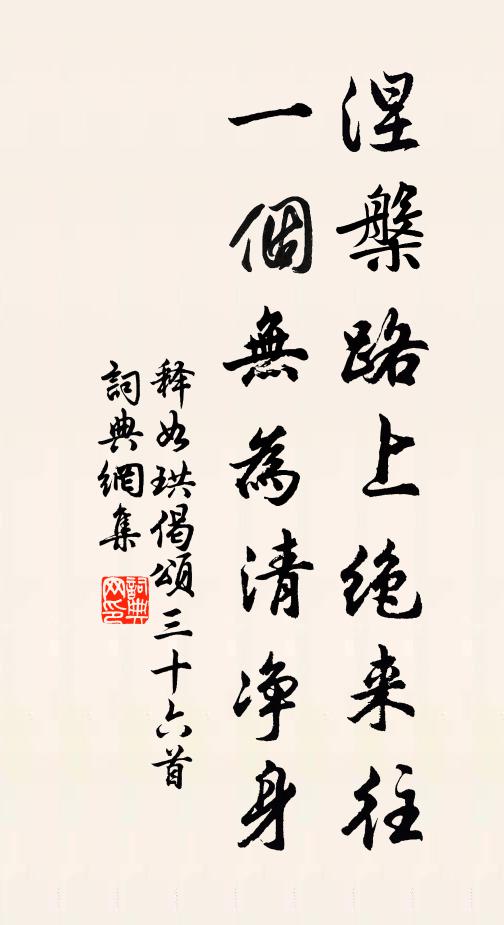 涅槃路上绝来往
一個無為清净身
释如珙偈頌三十六首
詞典網集
詞典網印